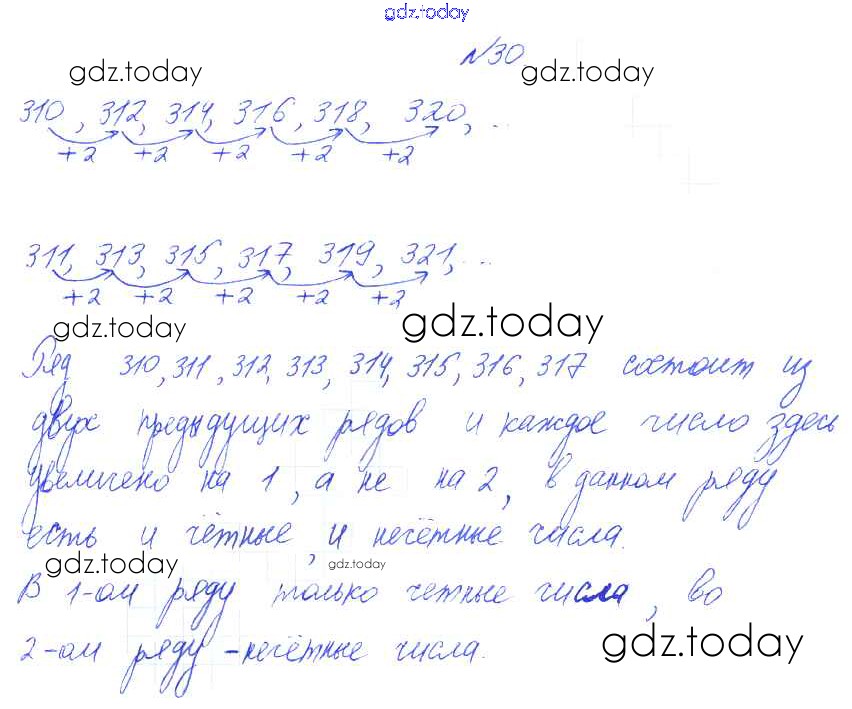 gdz.today
№30
gdz.today gdz.today
310, 312, 314, 316, 318, 320, ...
+2 +2 +2 +2 +2
311, 313, 315, 317, 319, 321, ...
+2 +2 +2 +2 +2
gdz.today gdz.today
Ряд 310, 311, 312, 313, 314, 315, 316, 317 состоит из
двух предыдущих рядов и каждое число здесь
увеличено на 1, а не на 2, в данном ряду
есть и чётные, и нечётные числа.
gdz.today gdz.today
В 1-ом ряду только четные числа, во
2-ом ряду - нечётные числа.
gdz.today